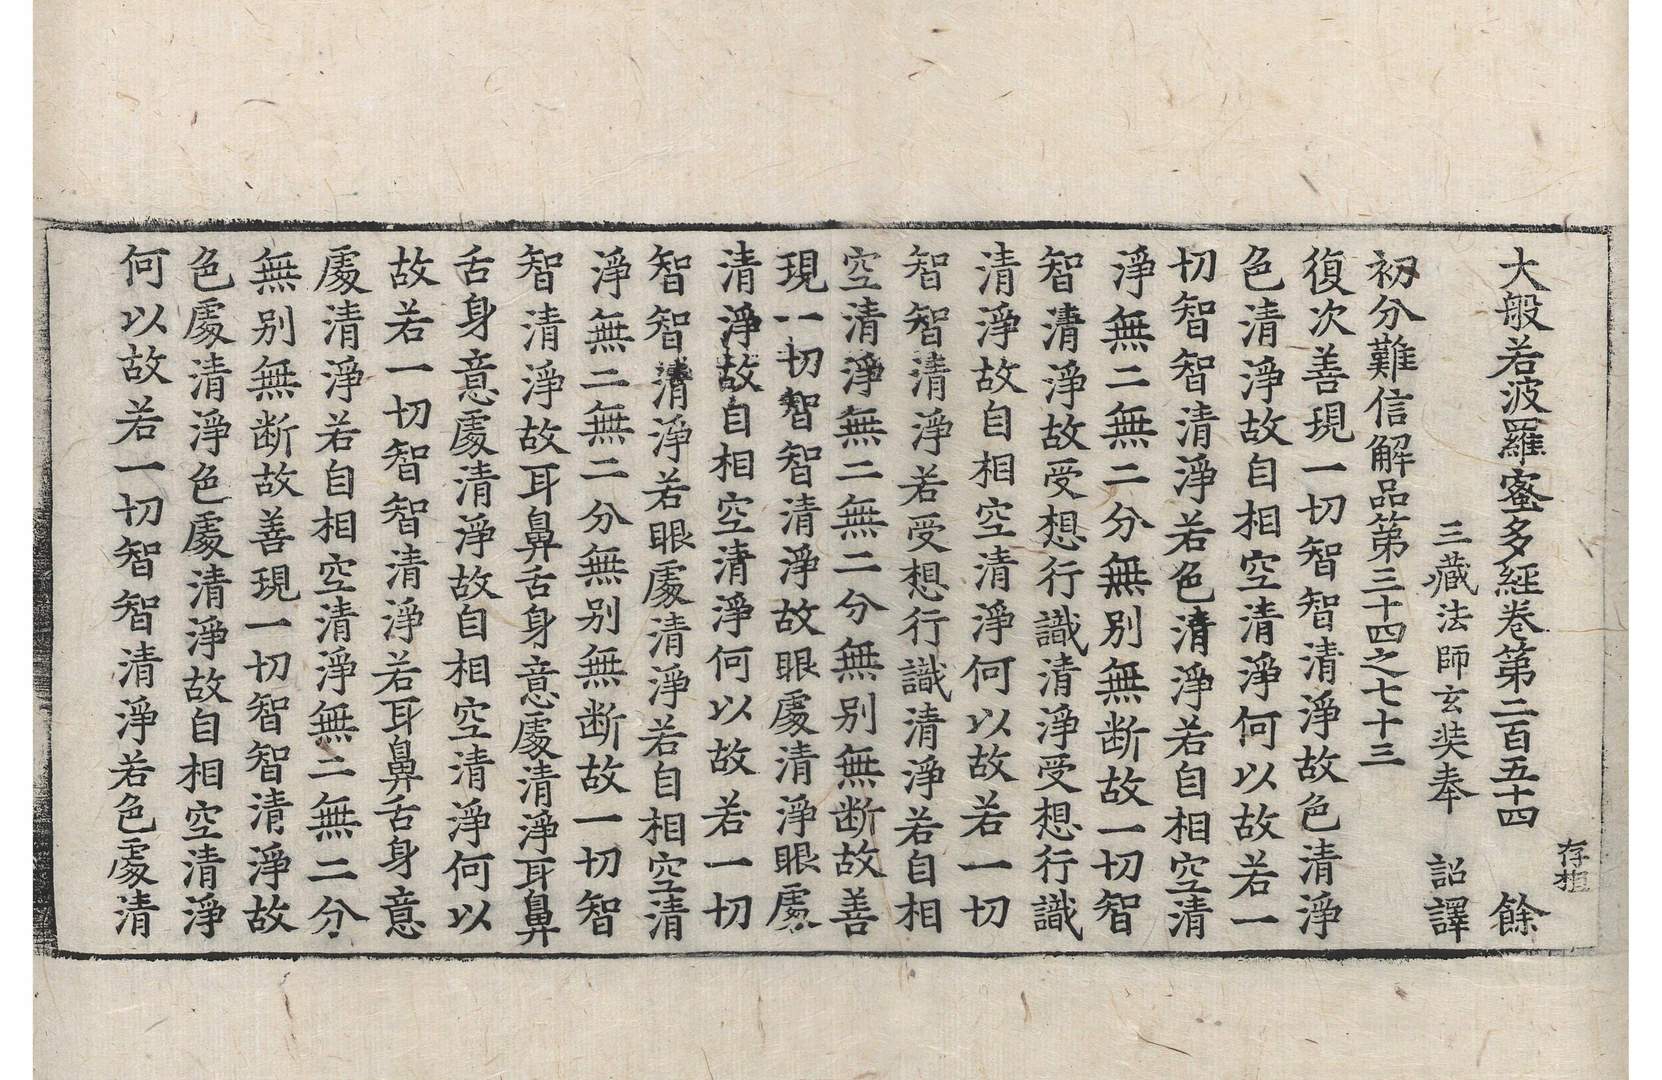 存
大般若波羅蜜多經卷第二百五十四 餘
三藏法師玄奘奉 詔譯
初分難信解品第三十四之七十三
復次善現一切智智清淨故色清淨
色清淨故自相空清淨何以故若一
切智智清淨若色清淨若自相空清
淨無二無二分無别無断故一切智
智清淨故受想行識清淨受想行識
清淨故自相空清淨何以故若一切
智智清淨若受想行識清淨若自相
空清淨無二無二分無别無断故善
現一切智智清淨故眼處清淨眼處
清淨故自相空清淨何以故若一切
智智清淨若眼處清淨若自相空清
淨無二無二分無别無断故一切智
智清淨故耳鼻舌身意處清淨耳鼻
舌身意處清淨故自相空清淨何以
故若一切智智清淨若耳鼻舌身意
處清淨若自相空清淨無二無二分
無别無断故善現一切智智清淨故
色處清淨色處清淨故自相空清淨
何以故若一切智智清淨若色處清